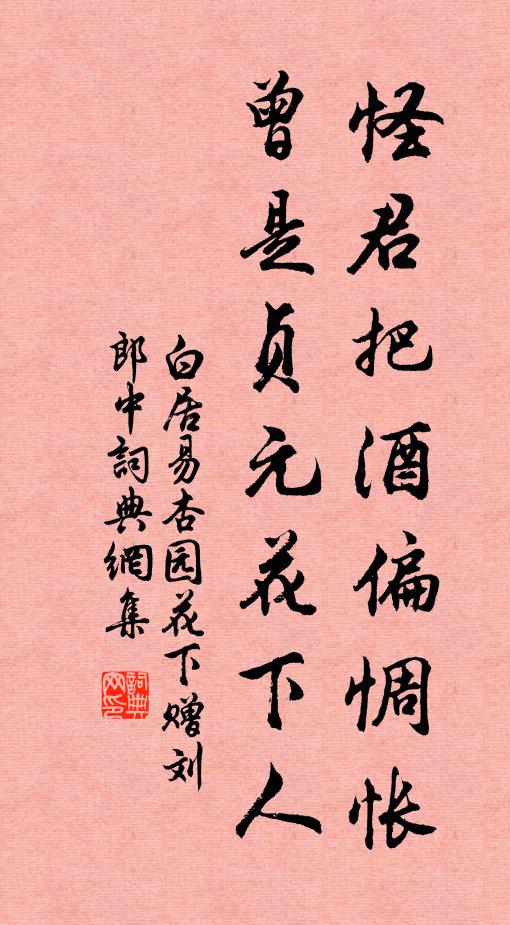 怪君把酒偏惆怅
曾是贞元花下人
白居易杏园花下赠刘
郎中詞典網集
詞典
网印